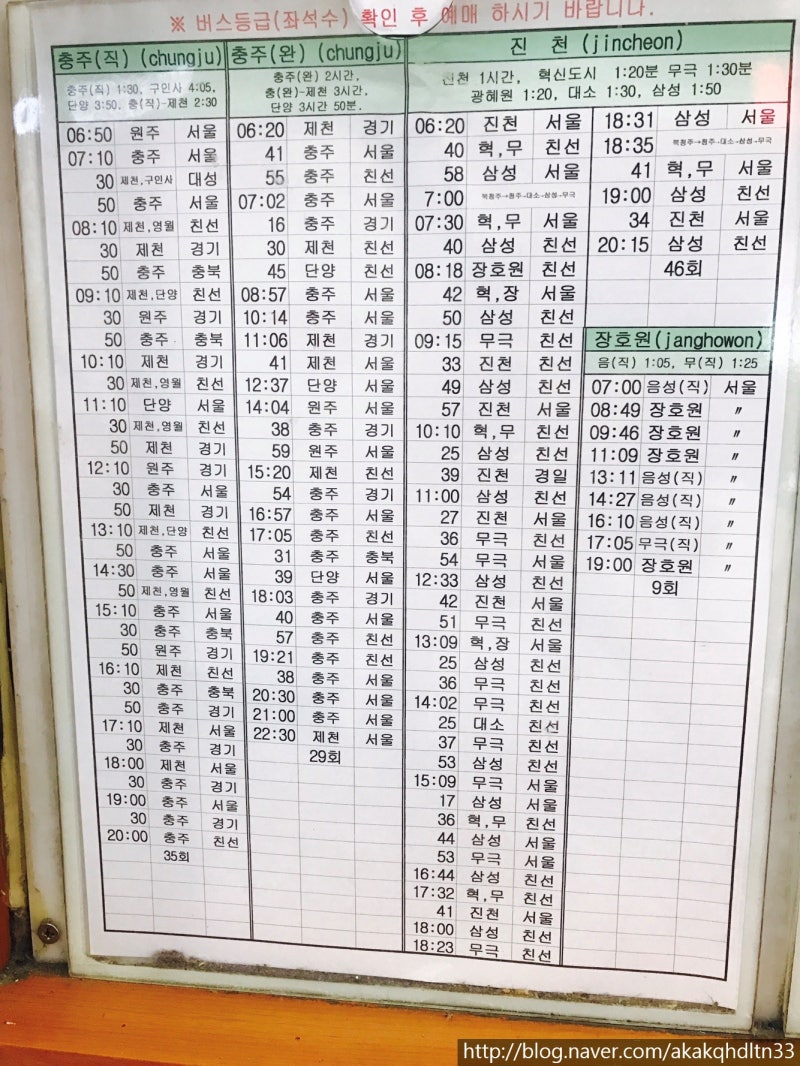 ※ 버스등급(좌석수) 확인 후 예매 하시기 바랍니다.
충주(직) (chungju)
충주(직) 1:30, 구인사 4:05,
단양 3:50, 충(직)-제천 2:30
06:50 원주 서울
07:10 충주 서울
30 제천,구인사 대성
50 충주 서울
08:10 제천,영월 친선
30 제천 경기
50 충주 충북
09:10 제천,단양 친선
30 원주 경기
50 충주 충북
10:10 제천 경기
30 제천,영월 친선
11:10 단양 서울
30 제천,영월 친선
50 제천 경기
12:10 원주 경기
30 충주 서울
50 제천 경기
13:10 제천,단양 친선
50 충주 서울
14:30 충주 서울
50 제천,영월 친선
15:10 충주 서울
30 충주 충북
50 원주 경기
16:10 제천 친선
30 충주 충북
50 충주 경기
17:10 제천 서울
30 충주 경기
18:00 제천 서울
30 충주 경기
19:00 충주 서울
30 충주 경기
20:00 충주 친선
35회
충주(완) (chungju)
충주(완) 2시간,
충(완)-제천 3시간,
단양 3시간 50분,
06:20 제천 경기
41 충주 서울
55 충주 친선
07:02 충주 서울
16 충주 경기
30 제천 친선
45 단양 친선
08:57 충주 서울
10:14 충주 서울
11:06 제천 경기
41 제천 서울
12:37 단양 서울
14:04 원주 서울
38 충주 경기
59 원주 서울
15:20 제천 친선
54 충주 경기
16:57 충주 서울
17:05 충주 친선
31 충주 충북
39 단양 서울
18:03 충주 경기
40 충주 서울
57 충주 친선
19:21 충주 친선
38 충주 서울
20:30 충주 서울
21:00 충주 서울
22:30 제천 서울
29회
진 천 (jincheon)
진천 1시간, 혁신도시 1:20분 무극 1:30분
광혜원 1:20, 대소 1:30, 삼성 1:50
06:20 진천 서울
40 혁,무 친선
58 삼성 서울
7:00 북청주→청주→대소→삼성→무극
07:30 혁,무 서울
40 삼성 친선
08:18 장호원 친선
42 혁,장 서울
50 삼성 친선
09:15 무극 친선
33 진천 친선
49 삼성 친선
57 진천 서울
10:10 혁,무 친선
25 삼성 친선
39 진천 경일
11:00 삼성 친선
27 진천 서울
36 무극 친선
54 무극 서울
12:33 삼성 친선
42 진천 서울
51 무극 친선
13:09 혁,장 서울
25 삼성 친선
36 무극 친선
14:02 무극 친선
25 대소 친선
37 무극 친선
53 삼성 친선
15:09 무극 서울
17 삼성 서울
36 혁,무 친선
44 삼성 서울
53 무극 서울
16:44 삼성 친선
17:32 혁,무 친선
41 진천 서울
18:00 삼성 친선
18:23 무극 친선
18:31 삼성 서울
18:35 북청주→청주→대소→삼성→무극
41 혁,무 서울
19:00 삼성 친선
34 진천 서울
20:15 삼성 친선
46회
장호원(janghowon)
음(직) 1:05, 무(직) 1:25
07:00 음성(직) 서울
08:49 장호원 〃
09:46 장호원 〃
11:09 장호원 〃
13:11 음성(직) 〃
14:27 음성(직) 〃
16:10 음성(직) 〃
17:05 무극(직) 〃
19:00 장호원 〃
9회
http://blog.naver.com/akakqhdltn33